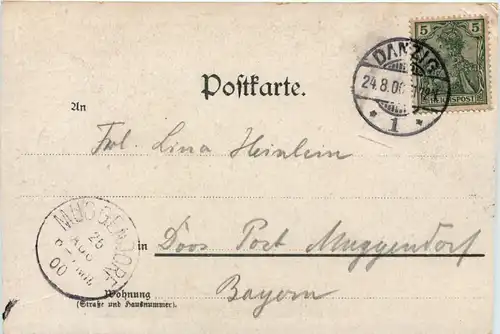 5 5
REICHSPOST
DANZIG
24.8.00
* 1 *
Postkarte.
An
Frl. Lina Heinlein
MUGGENDORF
25
AUG
00
in Doos Post Muggendorf
Bayern
Wohnung
(Straße und Hausnummer)